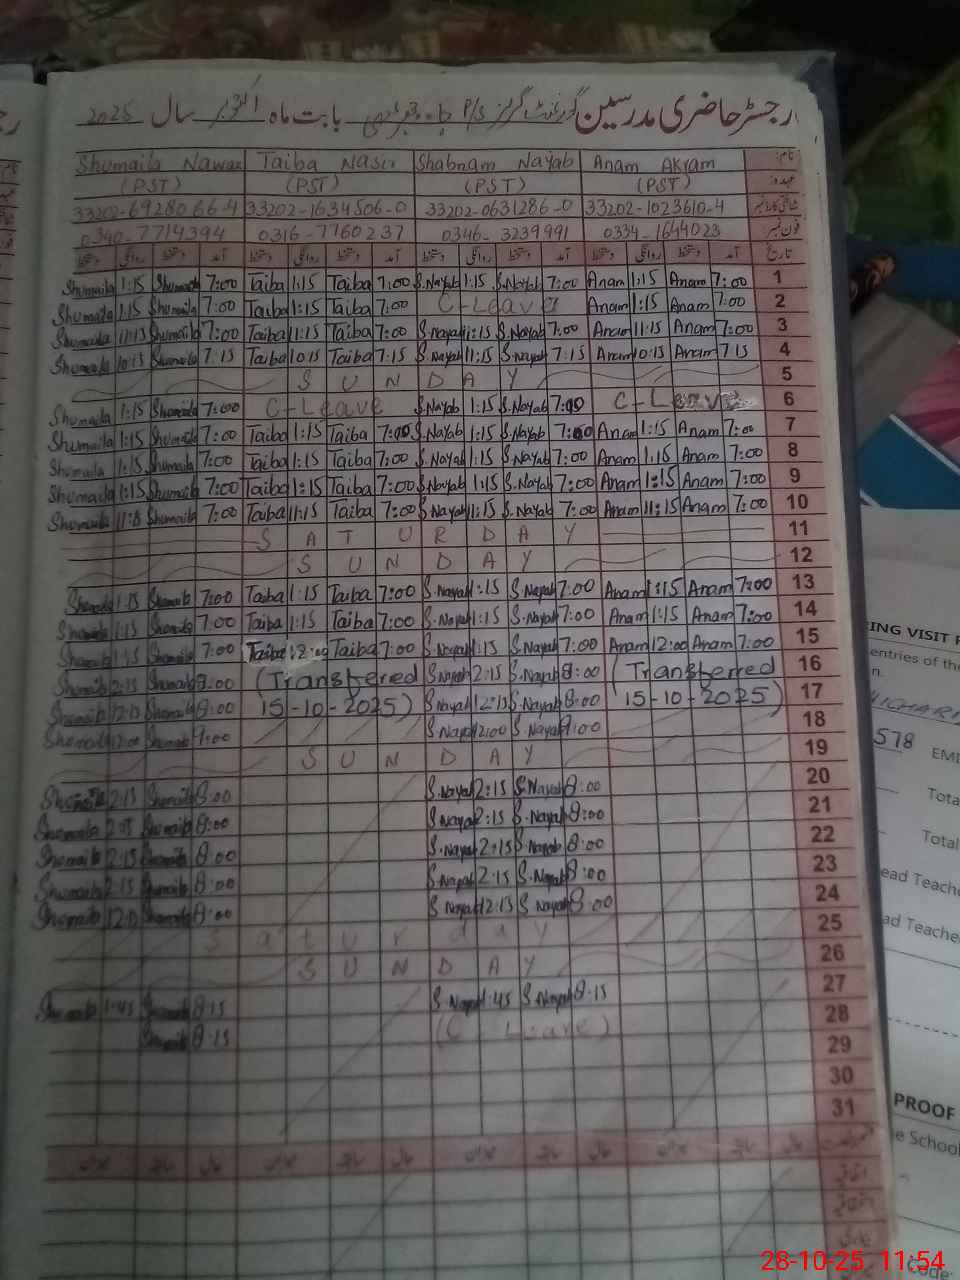 رجسٹر حاضری مدرسین گورنمنٹ گرلز P/S بابت ماہ اکتوبر سال 2025
Shumaila Nawaz Taiba Nasir Shabnam Nayab Anam Akram نام:
(PST) (PST) (PST) (PST) عہدہ:
33202-6928066-4 33202-1634506-0 33202-0631286-0 33202-1023610-4 شناختی کارڈ نمبر
0340-7714394 0316-7760237 0346-3239991 0334-1644023 فون نمبر
دستخط روانگی دستخط آمد دستخط روانگی دستخط آمد دستخط روانگی دستخط آمد دستخط روانگی دستخط آمد تاریخ
Shumaila 1:15 Shumaila 7:00 Taiba 1:15 Taiba 7:00 S.Nayab 1:15 S.Nayab 7:00 Anam 1:15 Anam 7:00 1
Shumaila 1:15 Shumaila 7:00 Taiba 1:15 Taiba 7:00 C-Leave Anam 1:15 Anam 7:00 2
Shumaila 11:15 Shumaila 7:00 Taiba 11:15 Taiba 7:00 S.Nayab 11:15 S.Nayab 7:00 Anam 11:15 Anam 7:00 3
Shumaila 10:15 Shumaila 7:15 Taiba 10:15 Taiba 7:15 S.Nayab 11:15 S.Nayab 7:15 Anam 10:15 Anam 7:15 4
SUNDAY 5
Shumaila 1:15 Shumaila 7:00 C-Leave S.Nayab 1:15 S.Nayab 7:00 C-Leave 6
Shumaila 1:15 Shumaila 7:00 Taiba 1:15 Taiba 7:00 S.Nayab 1:15 S.Nayab 7:00 Anam 1:15 Anam 7:00 7
Shumaila 1:15 Shumaila 7:00 Taiba 1:15 Taiba 7:00 S.Nayab 1:15 S.Nayab 7:00 Anam 1:15 Anam 7:00 8
Shumaila 1:15 Shumaila 7:00 Taiba 1:15 Taiba 7:00 S.Nayab 1:15 S.Nayab 7:00 Anam 1:15 Anam 7:00 9
Shumaila Shumaila 7:00 Taiba 11:15 Taiba 7:00 S.Nayab 11:15 S.Nayab 7:00 Anam 11:15 Anam 7:00 10
SATURDAY 11
SUNDAY 12
Shumaila 1:15 Shumaila 7:00 Taiba 1:15 Taiba 7:00 S.Nayab 1:15 S.Nayab 7:00 Anam 1:15 Anam 7:00 13
Shumaila 1:15 Shumaila 7:00 Taiba 1:15 Taiba 7:00 S.Nayab 1:15 S.Nayab 7:00 Anam 1:15 Anam 7:00 14
Shumaila 1:15 Shumaila 7:00 Taiba 12:00 Taiba 7:00 S.Nayab 1:15 S.Nayab 7:00 Anam 12:00 Anam 7:00 15
Shumaila 2:15 Shumaila 8:00 (Transferred S.Nayab 2:15 S.Nayab 8:00 (Transferred 16
Shumaila 12:15 Shumaila 8:00 15-10-2025) S.Nayab 12:15 S.Nayab 8:00 15-10-2025) 17
Shumaila 12:00 Shumaila S.Nayab 12:00 S.Nayab 18
SUNDAY 19
Shumaila 2:15 Shumaila 8:00 S.Nayab 2:15 S.Nayab 8:00 20
Shumaila 2:15 Shumaila 8:00 S.Nayab 2:15 S.Nayab 8:00 21
Shumaila 2:15 Shumaila 8:00 S.Nayab 2:15 S.Nayab 8:00 22
Shumaila 2:15 Shumaila 8:00 S.Nayab 2:15 S.Nayab 8:00 23
Shumaila Shumaila 8:00 S.Nayab 12:15 S.Nayab 8:00 24
Saturday 25
SUNDAY 26
Shumaila 1:45 Shumaila 8:15 S.Nayab 1:45 S.Nayab 8:15 27
Shumaila 8:15 (C-Leave) 28
29
30
31
RING VISIT
entries of the
n.
578 EMI
Tota
Total
ead Teache
ad Teache
PROOF
e School
Code:
28-10-25 11:54